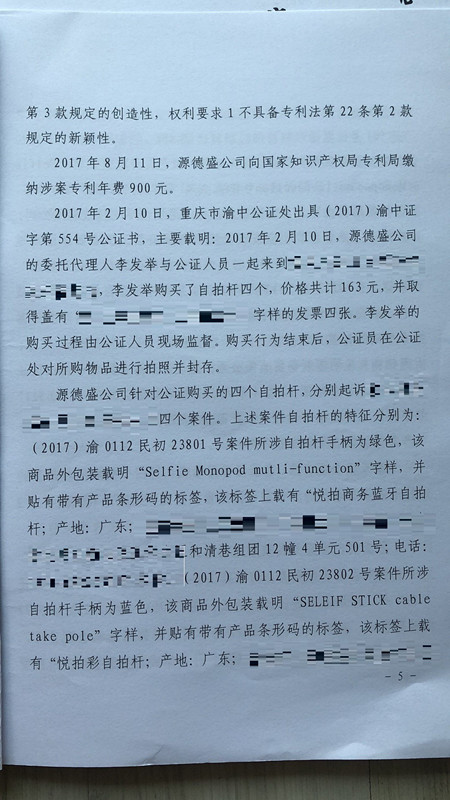 第 3 款规定的创造性，权利要求 1 不具备专利法第 22 条第 2 款
规定的新颖性。
2017 年 8 月 11 日，源德盛公司向国家知识产权局专利局缴
纳涉案专利年费 900 元。
2017 年 2 月 10 日，重庆市渝中公证处出具（2017）渝中证
字第 554 号公证书，主要载明：2017 年 2 月 10 日，源德盛公司
的委托代理人李发举与公证人员一起来到
，李发举购买了自拍杆四个，价格共计 163 元，并取
得盖有“ 字样的发票四张。李发举的
购买过程由公证人员现场监督。购买行为结束后，公证员在公证
处对所购物品进行拍照并封存。
源德盛公司针对公证购买的四个自拍杆，分别起诉
四个案件。上述案件自拍杆的特征分别为：
（2017）渝 0112 民初 23801 号案件所涉自拍杆手柄为绿色，该
商品外包装载明“Selfie Monopod mutli-function”字样，并
贴有带有产品条形码的标签，该标签上载有“悦拍商务蓝牙自拍
杆；产地：广东；
和清巷组团 12 幢 4 单元 501 号；电话：
（2017）渝 0112 民初 23802 号案件所涉
自拍杆手柄为蓝色，该商品外包装载明“SELEIF STICK cable
take pole”字样，并贴有带有产品条形码的标签，该标签上载
有“悦拍彩自拍杆；产地：广东；
- 5 -